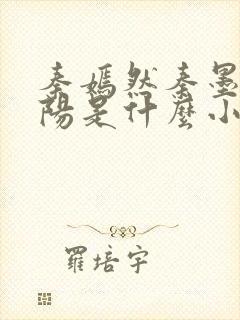 秦嫣然秦墨
陽是什麼小
羅培宇